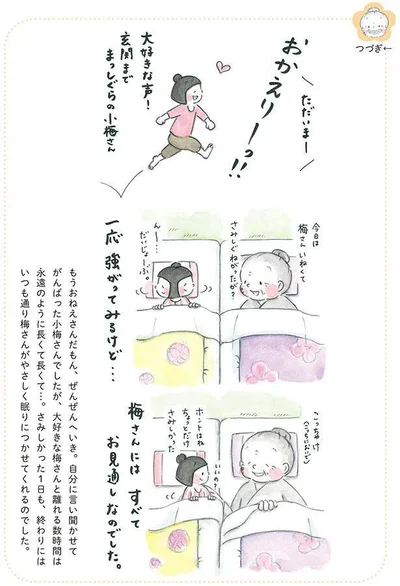 つづき←
ただいまー
おかえりーっ!!
大好きな声!
玄関まで
まっしぐらの小梅さん
今日は
梅さん いねくて
さみしぐねがったが?
んー…
だいじょーぶ。
一応 強がってみるけど…
こっちゃけ
(こっちにおいで)
いいの?
ホントはね
ちょっとだけ
さみしかった
梅さんには すべて
お見通しなのでした。
もうおねえさんだもん、ぜんぜんへいき。自分に言い聞かせて
がんばった小梅さんでしたが、大好きな梅さんと離れる数時間は
永遠のように長くて長くて…。さみしかった1日も、終わりには
いつも通り梅さんがやさしく眠りにつかせてくれるのでした。